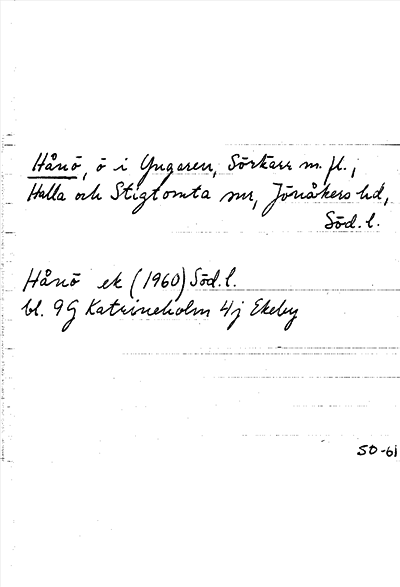 Hånö, ö i Yngaren, Sörkärr m. fl.,
Halla och Stigtomta snr, Jönåkers hd,
Söd. l.
Hånö ek (1960) Söd. l.
bl. 9G Katrineholm 4j Ekeby
SO-61